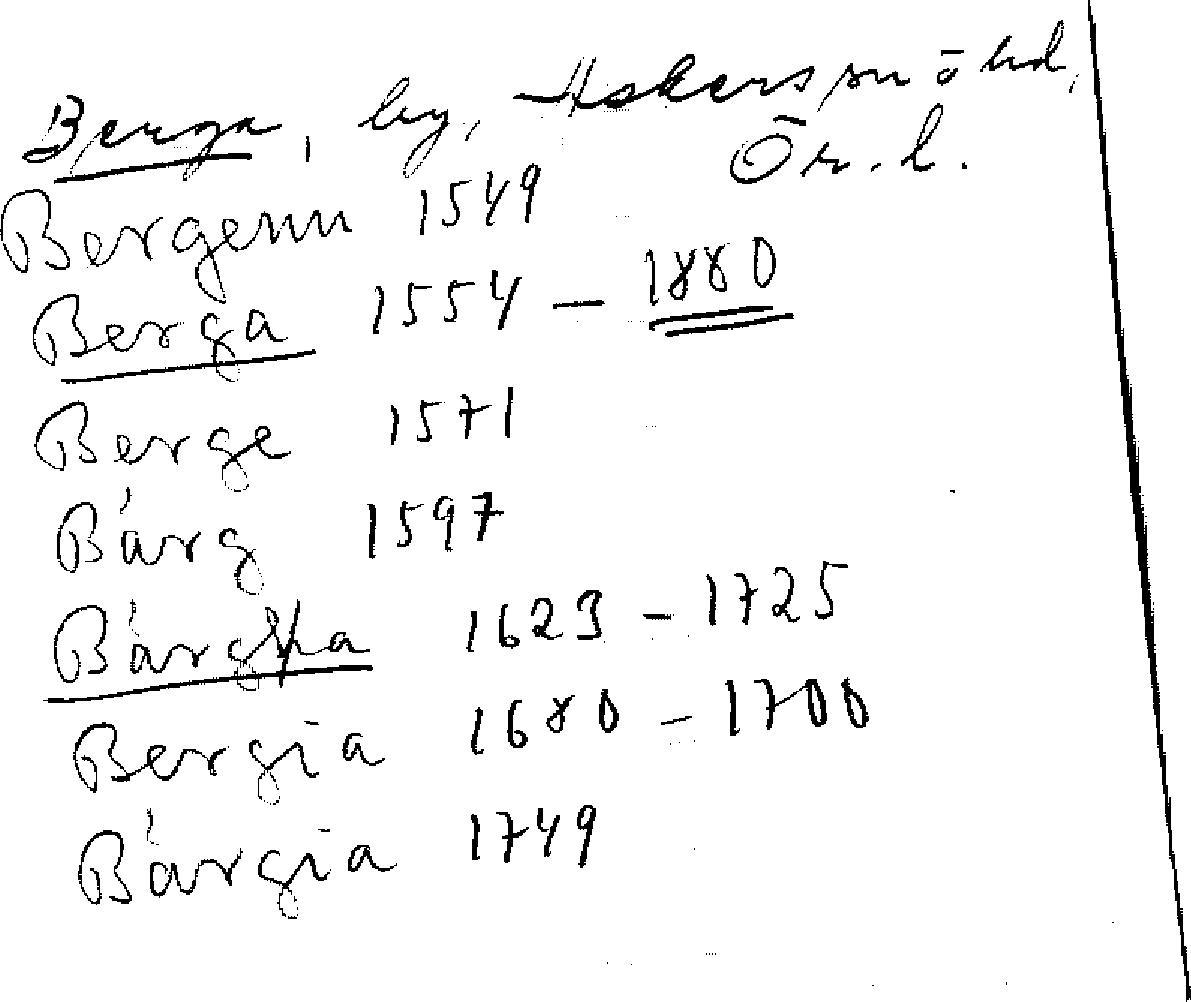 Berga, by, Askers sn ō hd,
Ör. l.
Bergenn 1549
Berga 1554 – 1880
Berge 1571
Bárg 1597
Bárgha 1623 – 1725
Bergia 1680 – 1700
Bárgia 1749